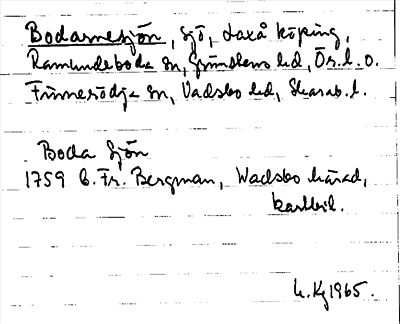 Bodarnesjön, sjö, Laxå köping,
Ramundeboda sn, Grimstens hd, Ör. l. o.
Finnerödja sn, Vadsbo hd, Skarab. l.
Boda Sjön
1759 C. Fr. Bergman, Wadsbo härad,
kartbil.
1965.